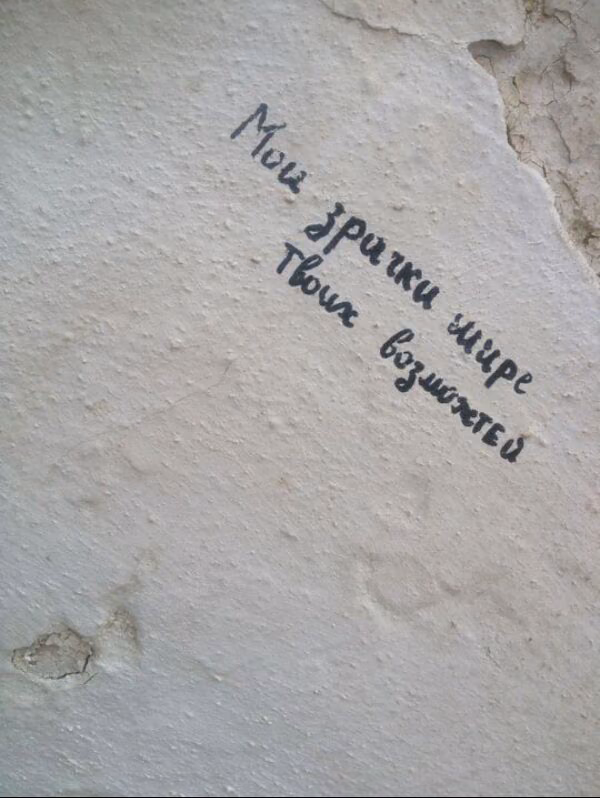 Мои зрачки шире
твоих возможтей